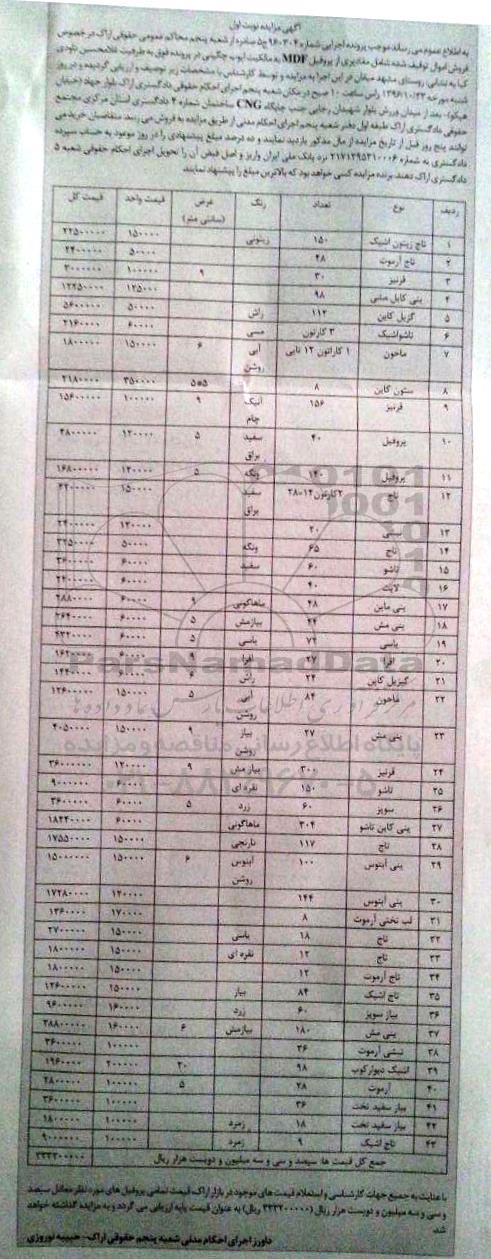 آگهی مزایده نوبت اول
به اطلاع عموم می رساند بموجب پرونده اجرایی شماره ۹۶۰۳۰۴ ج۵ صادره از شعبه پنجم محاکم عمومی حقوقی اراک در خصوص
فروش اموال توقیف شده شامل مقادیری از پروفیل MDF به مالکیت ایوب چگینی در پرونده فوق به طرفیت غلامحسین داودی
کیا به نشانی روستای مشهد میقان در این اجرا به مزایده و توسط کارشناس با مشخصات زیر توصیف و ارزیابی گردیده و در روز
شنبه مورخه ۱۳۹۶/۱۰/۲۳ راس ساعت ۱۰ صبح در مکان شعبه پنجم اجرای احکام حقوقی دادگستری اراک بلوار جهاد (خیابان
هپکو)- بعد از میدان ورزش بلوار شهیدان رجایی جنب جایگاه CNG ساختمان شماره ۲ دادگستری استان مرکزی مجتمع
حقوقی دادگستری اراک طبقه اول دفتر شعبه پنجم اجرای احکام مدنی از طریق مزایده به فروش می رسد متقاضیان خرید می
توانند پنج روز قبل از تاریخ مزایده از مال مذکور بازدید نمایند و ده درصد مبلغ پیشنهادی را در روز موعود به حساب سپرده
دادگستری به شماره ۲۱۷۱۲۹۵۲۱۰۰۰۶ نزد بانک ملی ایران واریز و اصل فیش آن را تحویل اجرای احکام حقوقی شعبه ۵
دادگستری اراک دهند. برنده مزایده کسی خواهد بود که بالاترین مبلغ را پیشنهاد نمایند.
ردیف نوع تعداد رنگ عرض (سانتی متر) قیمت واحد قیمت کل
۱ تاج زیتون اشیک ۱۵۰ زیتونی ۱۵۰۰۰۰ ۲۲۵۰۰۰۰۰
۲ تاج آرموت ۴۸ ۵۰۰۰۰ ۲۴۰۰۰۰۰
۳ قرنیز ۳۰ ۹ ۱۰۰۰۰۰ ۳۰۰۰۰۰۰
۴ پنی کابل میانی ۹۸ ۱۲۵۰۰۰ ۱۲۲۵۰۰۰۰
۵ گزیل کاین ۱۱۲ راش ۵۰۰۰۰ ۵۶۰۰۰۰۰
۶ تاشواشیک ۳ کارتون مسی ۶۰۰۰۰ ۲۱۶۰۰۰۰
۷ ماحون ۱ کارتون ۱۲ تایی آبی روشن ۶ ۱۵۰۰۰۰ ۱۸۰۰۰۰۰
۸ ستون کاین ۸ ۵*۵ ۳۵۰۰۰۰ ۲۱۸۰۰۰۰
۹ قرنیز ۱۵۶ آنیک چام ۹ ۱۰۰۰۰۰ ۱۵۶۰۰۰۰۰
۱۰ پروفیل ۴۰ سفید براق ۵ ۱۲۰۰۰۰ ۴۸۰۰۰۰۰
۱۱ پروفیل ۱۴۰ ونگه ۵ ۱۲۰۰۰۰ ۱۶۸۰۰۰۰۰
۱۲ تاج ۲کارتون۱۴=۲۸ سفید براق ۱۵۰۰۰۰ ۴۲۰۰۰۰۰
۱۳ ۲۰ ۱۲۰۰۰۰ ۲۴۰۰۰۰۰
۱۴ تاج ۶۵ ونگه ۵۰۰۰۰ ۳۲۵۰۰۰۰
۱۵ تاشو ۶۰ سفید ۶۰۰۰۰ ۳۶۰۰۰۰۰
۱۶ لایت ۴۰ ۶۰۰۰۰ ۲۴۰۰۰۰۰
۱۷ پنی ماین ۴۸ ماهاگونی ۹ ۶۰۰۰۰ ۲۸۸۰۰۰۰
۱۸ پنی مش ۴۴ بیازمش ۵ ۶۰۰۰۰ ۲۶۴۰۰۰۰
۱۹ یاسی ۷۲ یاسی ۵ ۶۰۰۰۰ ۴۳۲۰۰۰۰
۲۰ افرا ۲۷ افرا ۹ ۶۰۰۰۰ ۱۶۲۰۰۰۰
۲۱ گیزیل کاین ۲۴ راش ۶ ۶۰۰۰۰ ۱۴۴۰۰۰۰
۲۲ ماحون ۸۴ آبی روشن ۵ ۱۵۰۰۰۰ ۱۲۶۰۰۰۰۰
۲۳ پنی مش ۲۷ بیاز روشن ۹ ۱۵۰۰۰۰ ۴۰۵۰۰۰۰
۲۴ قرنیز ۳۰۰ بیاز مش ۹ ۱۲۰۰۰۰ ۳۶۰۰۰۰۰۰
۲۵ تاشو ۱۵۰ نقره ای ۶۰۰۰۰ ۹۰۰۰۰۰۰
۲۶ سوپز ۶۰ زرد ۵ ۶۰۰۰۰ ۳۶۰۰۰۰۰
۲۷ پنی کاین تاشو ۳۰۴ ماهاگونی ۶۰۰۰۰ ۱۸۲۴۰۰۰۰
۲۸ تاج ۱۱۷ نارنجی ۱۵۰۰۰۰ ۱۷۵۵۰۰۰۰
۲۹ پنی آبنوس ۱۰۰ آبنوس روشن ۶ ۱۵۰۰۰۰ ۱۵۰۰۰۰۰۰
۳۰ پنی آبنوس ۱۴۴ ۱۲۰۰۰۰ ۱۷۲۸۰۰۰۰
۳۱ لب تختی آرموت ۸ ۱۷۰۰۰۰ ۱۳۶۰۰۰۰
۳۲ تاج ۱۸ یاسی ۱۵۰۰۰۰ ۲۷۰۰۰۰۰
۳۳ تاج ۱۲ نقره ای ۱۵۰۰۰۰ ۱۸۰۰۰۰۰
۳۴ تاج آرموت ۱۲ ۱۵۰۰۰۰ ۱۸۰۰۰۰۰
۳۵ تاج اشیک ۸۴ بیاز ۱۵۰۰۰۰ ۱۲۶۰۰۰۰۰
۳۶ بیاز سوپز ۶۰ زرد ۱۶۰۰۰۰ ۹۶۰۰۰۰۰
۳۷ پنی مش ۱۸۰ بیازمش ۶ ۱۶۰۰۰۰ ۲۸۸۰۰۰۰۰
۳۸ نبشی آرموت ۳۶ ۱۰۰۰۰۰ ۳۶۰۰۰۰۰
۳۹ آنتیک دیوارکوب ۹۸ ۲۰ ۲۰۰۰۰۰ ۱۹۶۰۰۰۰
۴۰ آرموت ۲۸ ۵ ۱۰۰۰۰۰ ۲۸۰۰۰۰۰
۴۱ بیاز سفید تخت ۳۶ ۱۰۰۰۰۰ ۳۶۰۰۰۰۰
۴۲ بیاز سفید تخت ۱۸ زمرد ۱۰۰۰۰۰ ۱۸۰۰۰۰۰
۴۳ تاج اشیک ۹ زمرد ۱۰۰۰۰۰ ۹۰۰۰۰۰۰
جمع کل قیمت ها سیصد و سی و سه میلیون و دویست هزار ریال ۳۳۳۲۰۰۰۰۰
با عنایت به جمیع جهات کارشناسی و استعلام قیمت های موجود در بازار اراک، قیمت تمامی پروفیل های مورد نظر معادل سیصد
و سی و سه میلیون و دویست هزار ریال (۳۳۳۲۰۰۰۰۰ ریال) به عنوان قیمت پایه ارزیابی می گردد و به مزایده گذاشته خواهد
شد.
دادورز اجرای احکام مدنی شعبه پنجم حقوقی اراک- حبیبه نوروزی
ParsNamadData
پایگاه اطلاع رسانی مناقصه و مزایده